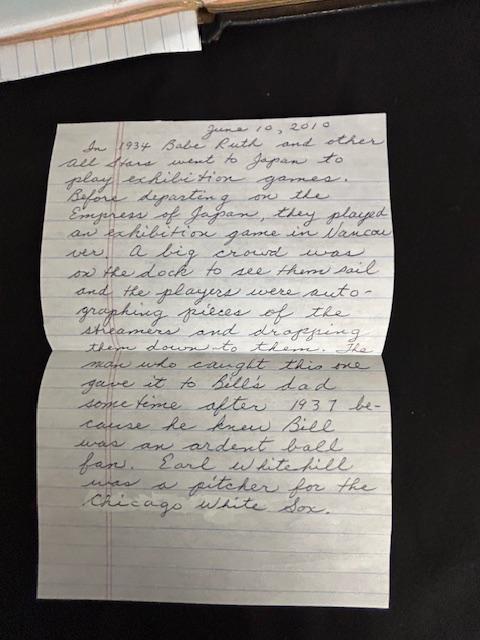 June 10, 2010
In 1934 Babe Ruth and other
All Stars went to Japan to
play exhibition games.
Before departing on the
Empress of Japan, they played
an exhibition game in Vancou
ver. A big crowd was
on the dock to see them sail
and the players were auto-
graphing pieces of the
streamers and dropping
them down to them. The
man who caught this one
gave it to Bill's dad
sometime after 1937 be-
cause he knew Bill
was an ardent ball
fan. Earl Whitehill
was a pitcher for the
Chicago White Sox.